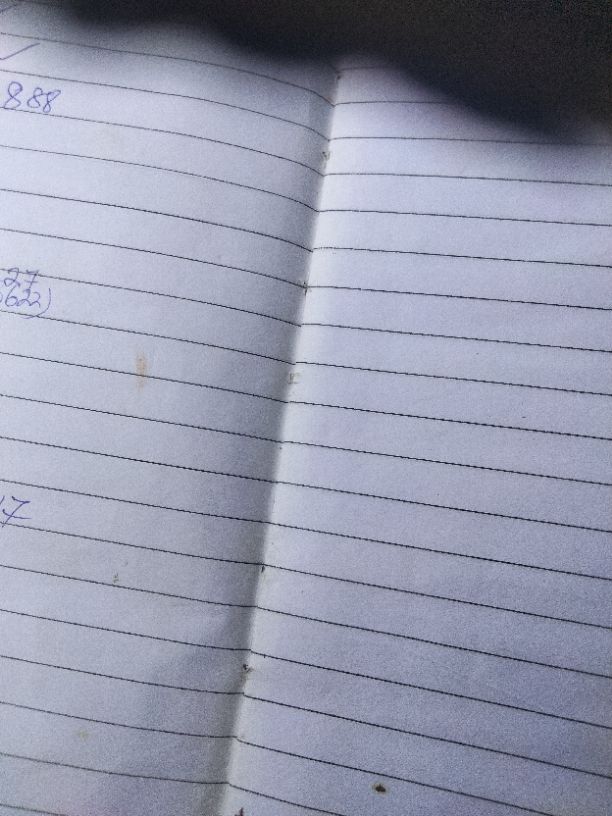 888
27
622)
7